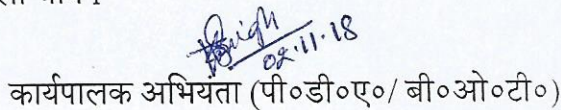 02.11.18
कार्यपालक अभियंता (पी०डी०ए०/ बी०ओ०टी०)